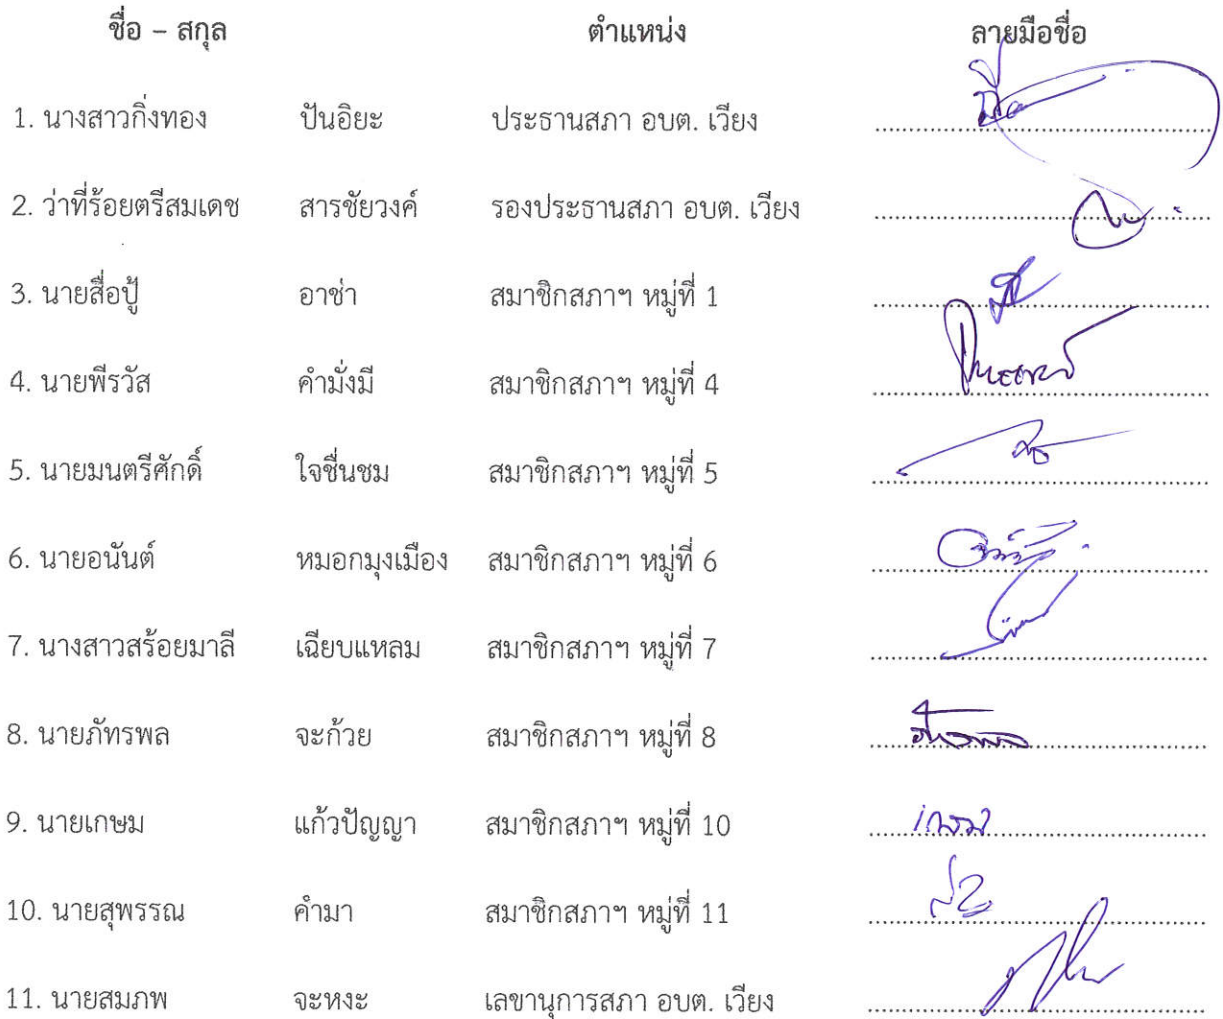 ชื่อ – สกุล ตำแหน่ง ลายมือชื่อ
1. นางสาวกิ่งทอง ปันอิยะ ประธานสภา อบต. เวียง
2. ว่าที่ร้อยตรีสมเดช สารชัยวงค์ รองประธานสภา อบต. เวียง
3. นายสื่อปู้ อาช่า สมาชิกสภาฯ หมู่ที่ 1
4. นายพีรวัส คำมั่งมี สมาชิกสภาฯ หมู่ที่ 4
5. นายมนตรีศักดิ์ ใจชื่นชม สมาชิกสภาฯ หมู่ที่ 5
6. นายอนันต์ หมอกมุงเมือง สมาชิกสภาฯ หมู่ที่ 6
7. นางสาวสร้อยมาลี เฉียบแหลม สมาชิกสภาฯ หมู่ที่ 7
8. นายภัทรพล จะก้วย สมาชิกสภาฯ หมู่ที่ 8
9. นายเกษม แก้วปัญญา สมาชิกสภาฯ หมู่ที่ 10 เกษม
10. นายสุพรรณ คำมา สมาชิกสภาฯ หมู่ที่ 11
11. นายสมภพ จะหงะ เลขานุการสภา อบต. เวียง